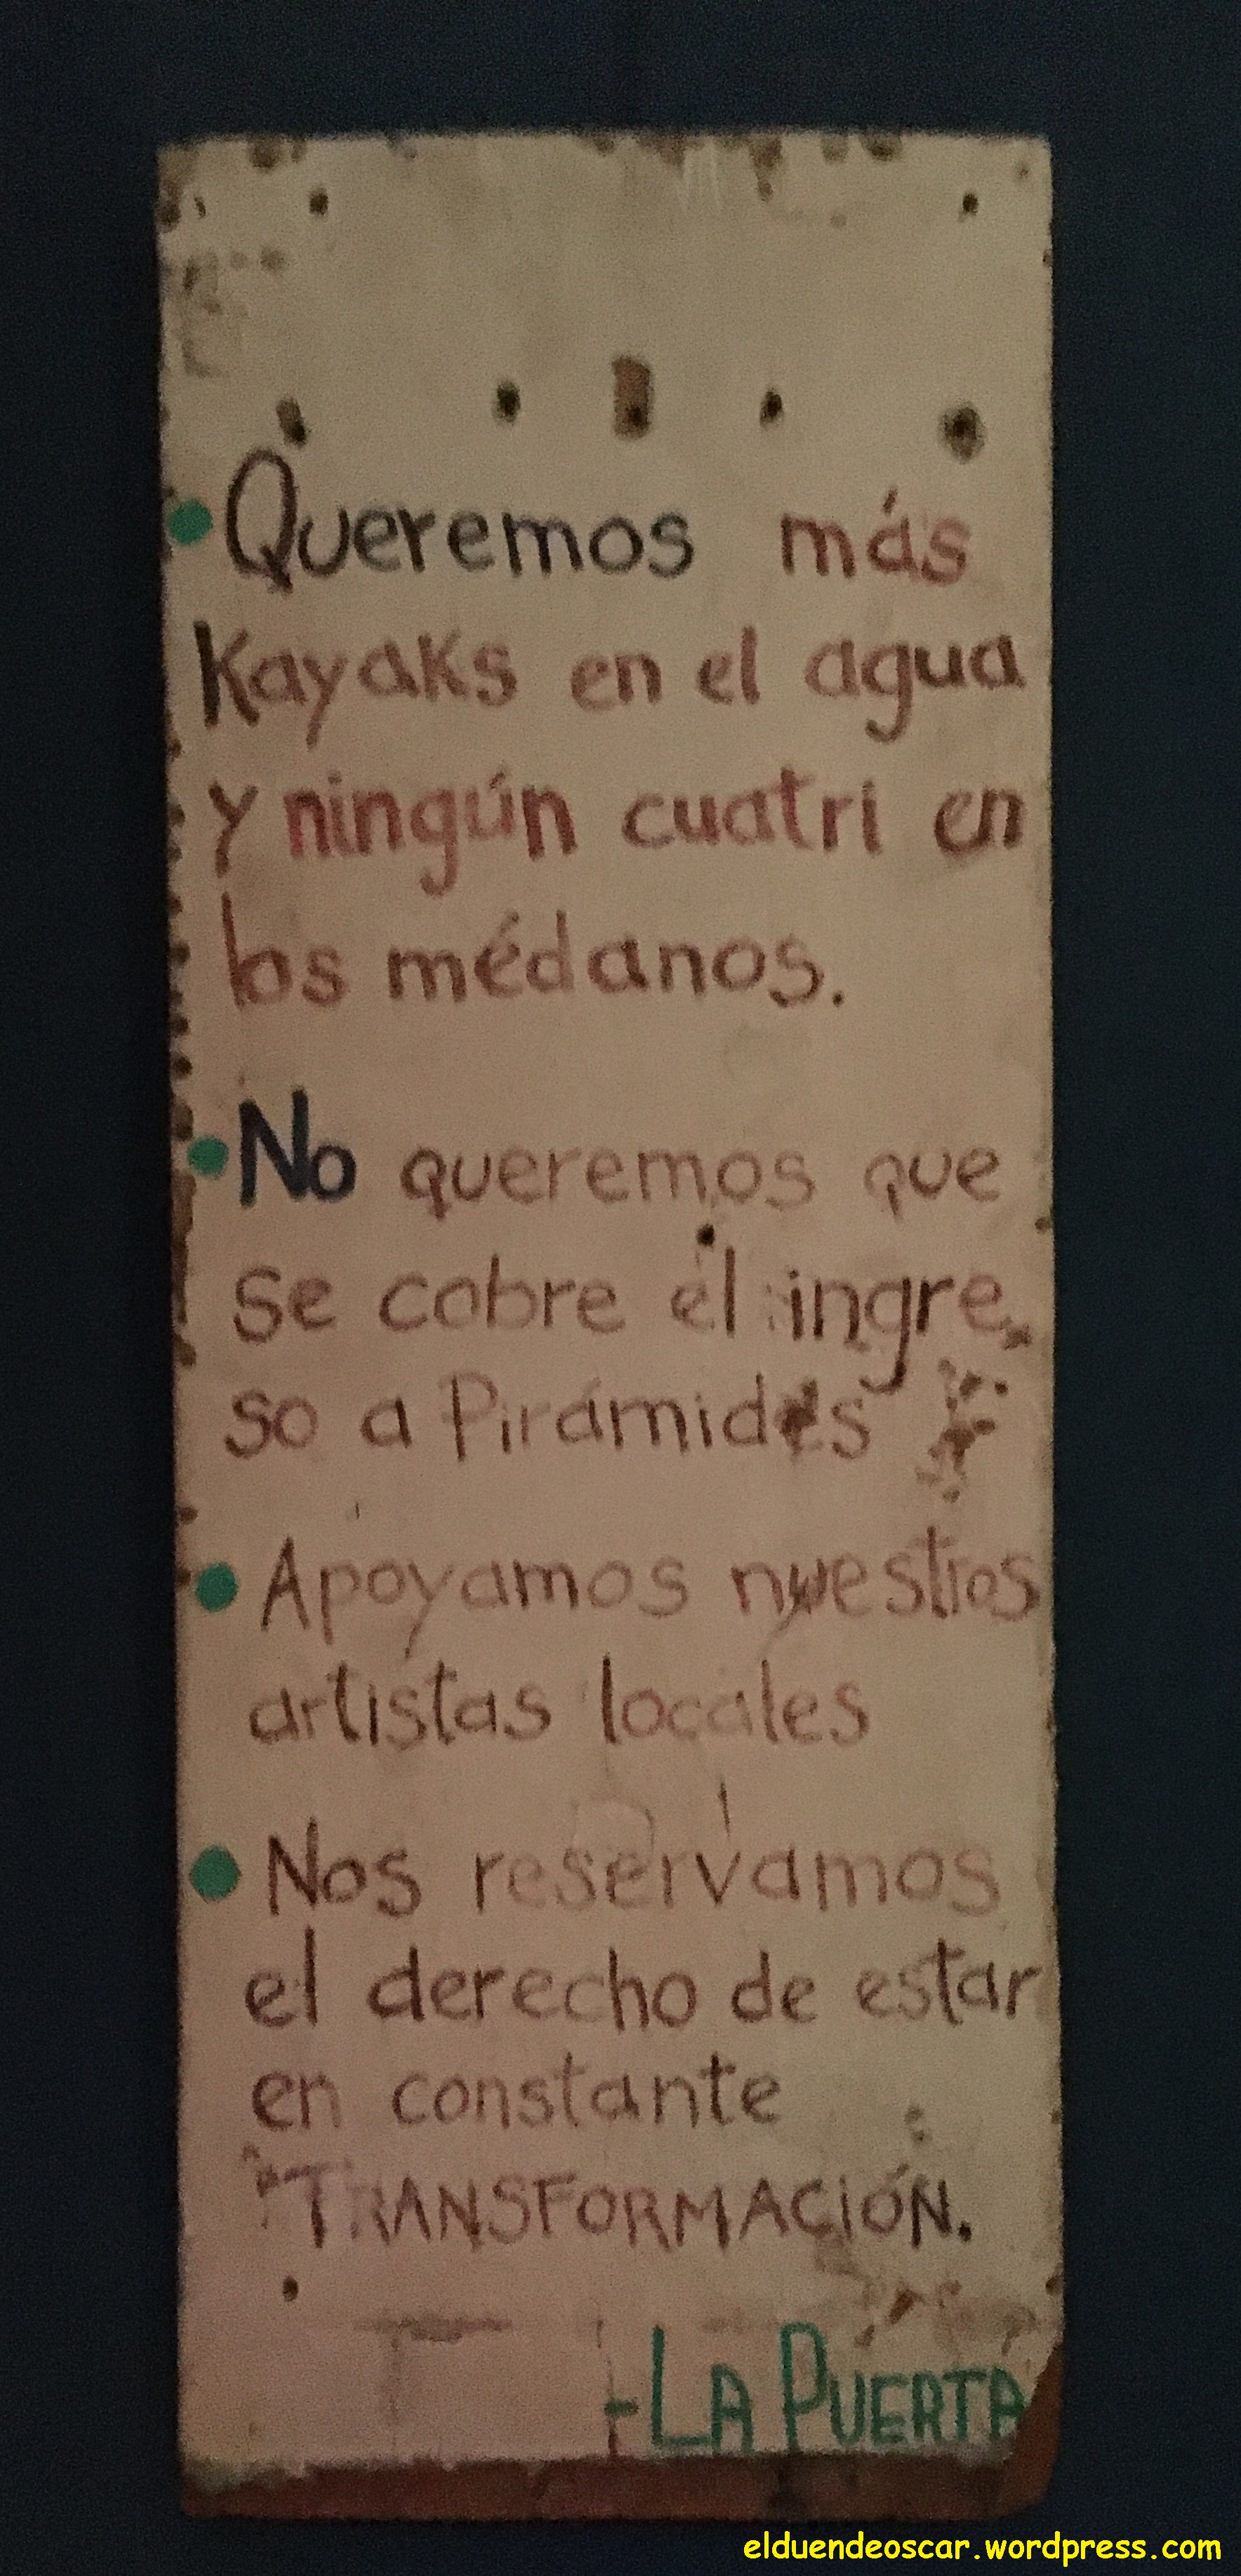 • Queremos más
Kayaks en el agua
y ningún cuatri en
los médanos.
• No queremos que
se cobre el ingre
so a Pirámides
• Apoyamos nuestros
artistas locales
• Nos reservamos
el derecho de estar
en constante
TRANSFORMACIÓN.
- LA PUERTA
elduendeoscar.wordpress.com